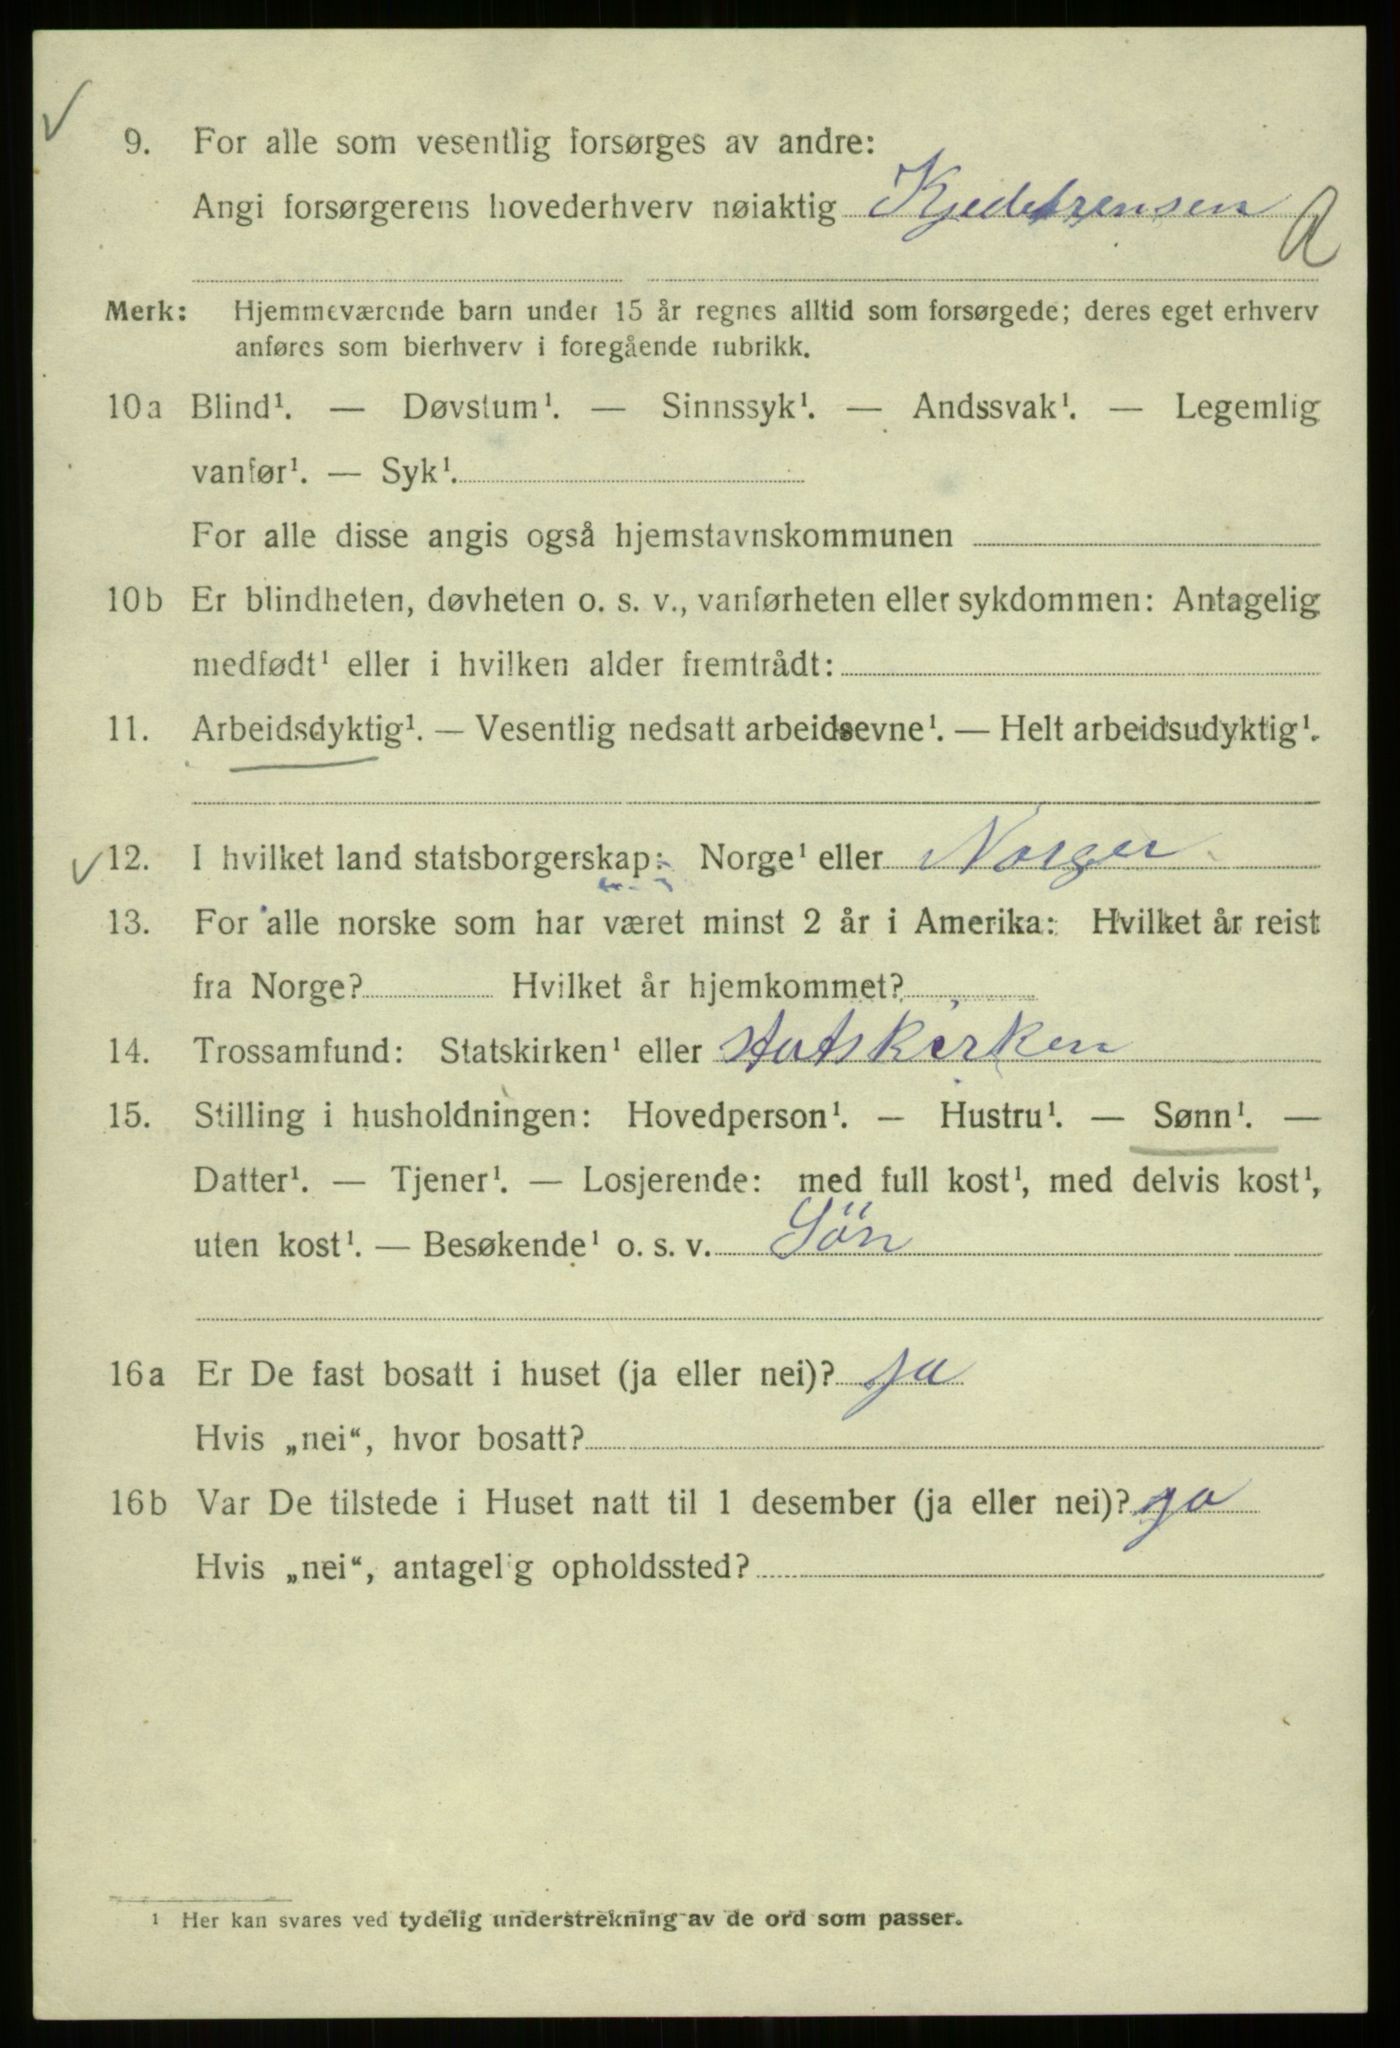 9. For alle som vesentlig forsørges av andre:
Angi forsørgerens hovederhverv nøiaktig
Merk: Hjemmeværende barn under 15 år regnes alltid som forsørgede; deres eget erhverv
anføres som bierhverv i foregående rubrikk.
10a Blind¹. — Døvstum¹. — Sinnssyk¹. — Andssvak¹. — Legemlig
vanfør¹. — Syk¹.
For alle disse angis også hjemstavnskommunen
10b Er blindheten, døvheten o. s. v., vanførheten eller sykdommen: Antagelig
medfødt¹ eller i hvilken alder fremtrådt:
11. Arbeidsdyktig¹. — Vesentlig nedsatt arbeidsevne¹. — Helt arbeidsudyktig¹.
12. I hvilket land statsborgerskap: Norge¹ eller Norger
13. For alle norske som har været minst 2 år i Amerika: Hvilket år reist
fra Norge? Hvilket år hjemkommet?
14. Trossamfund: Statskirken¹ eller statskirken
15. Stilling i husholdningen: Hovedperson¹. — Hustru¹. — Sønn¹. —
Datter¹. — Tjener¹. — Losjerende: med full kost¹, med delvis kost¹,
uten kost¹. — Besøkende¹ o. s. v. Sön
16a Er De fast bosatt i huset (ja eller nei)? ja
Hvis „nei“, hvor bosatt?
16b Var De tilstede i Huset natt til 1 desember (ja eller nei)? ja
Hvis „nei“, antagelig opholdssted?
¹ Her kan svares ved tydelig understrekning av de ord som passer.